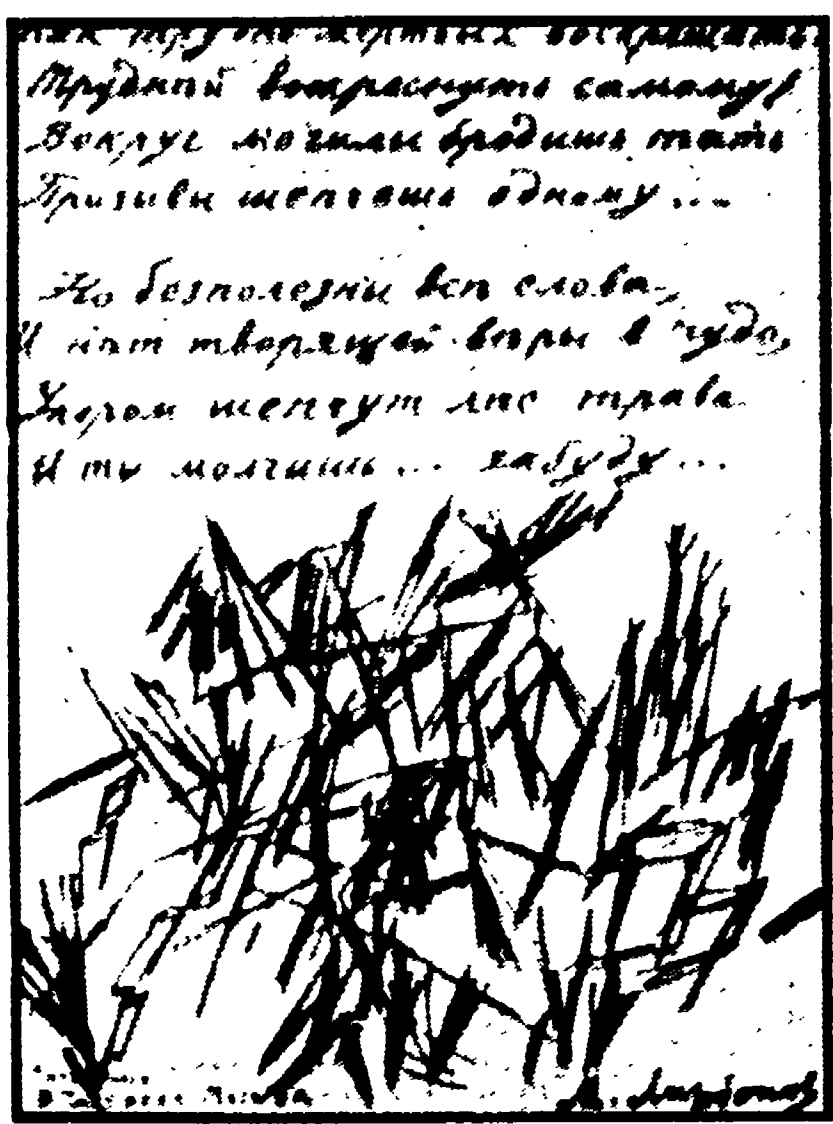 Как трудно мертвых воскрешать
Трудней воскреснуть самому!
Вокруг могилы бродишь тать
Призывы шепчешь одному...
Но безполезны всѣ слова,
И нѣт творящей вѣры в чудо,
Укором шепчут лѣс трава
И ты молчишь... забуду...
Москва М. Ларіонов